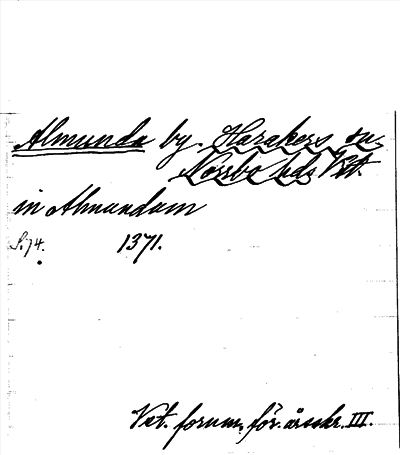 Almunda by. Harakers sn,
Norrbo hds Vstm.
in Almundom
S. 74. 1371.
Vät. fornm. för. årsskr. III.